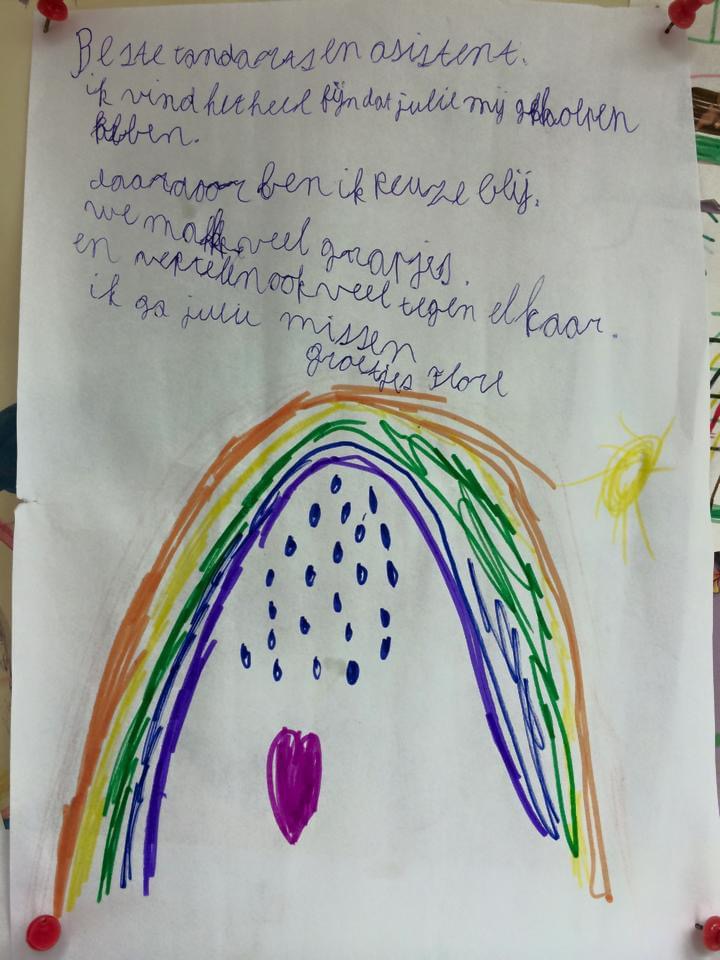 Beste tandarts en asistent.
ik vind het heel fijn dat julie mij geholpen
hebben.
daardoor ben ik reuze blij.
we maken veel grapjes.
en vertelen ook veel tegen elkaar.
ik ga julie missen
groetjes Flore